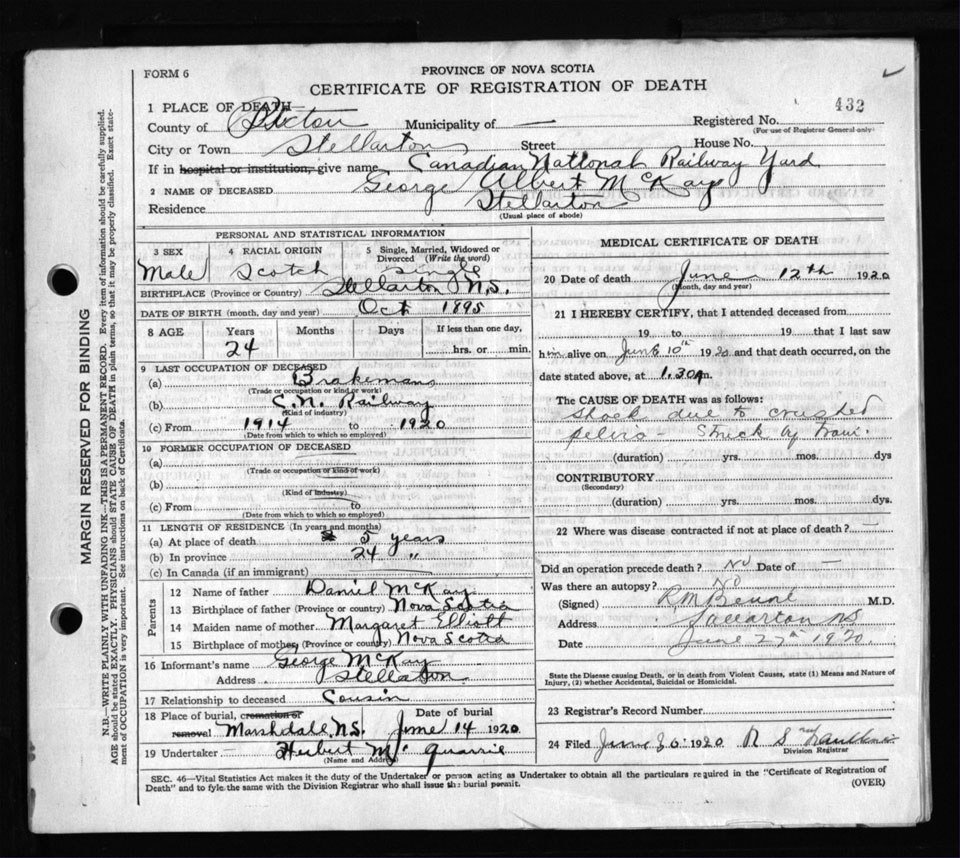 FORM 6
PROVINCE OF NOVA SCOTIA
CERTIFICATE OF REGISTRATION OF DEATH
432
1 PLACE OF DEATH—
County of Pictou Municipality of — Registered No.
(For use of Registrar General only)
City or Town Stellarton Street House No.
If in hospital or institution, give name Canadian National Railway Yard
2 NAME OF DECEASED George Albert McKay
Residence Stellarton
(Usual place of abode)
PERSONAL AND STATISTICAL INFORMATION
3 SEX 4 RACIAL ORIGIN 5 Single, Married, Widowed or Divorced (Write the word)
Male Scotch Single
BIRTHPLACE (Province or Country) Stellarton N.S.
DATE OF BIRTH (month, day and year) Oct 1895
8 AGE Years Months Days If less than one day,
24 hrs. or min.
9 LAST OCCUPATION OF DECEASED
(a) Brakeman
(Trade or occupation or kind of work)
(b) C.N. Railway
(Kind of industry)
(c) From 1914 to 1920
(Date from which to which so employed)
10 FORMER OCCUPATION OF DECEASED
(a)
(Trade or occupation or kind of work)
(b)
(Kind of industry)
(c) From to
(Date from which to which so employed)
11 LENGTH OF RESIDENCE (In years and months)
(a) At place of death 5 years
(b) In province 24 "
(c) In Canada (if an immigrant)
Parents
12 Name of father Daniel McKay
13 Birthplace of father (Province or country) Nova Scotia
14 Maiden name of mother Margaret Elliott
15 Birthplace of mother (Province or country) Nova Scotia
16 Informant's name George McKay
Address Stellarton
17 Relationship to deceased Cousin
18 Place of burial, cremation or removal Marshdale, N.S. Date of burial June 14 1920
19 Undertaker Herbert McQuarrie
(Name and Address)
MEDICAL CERTIFICATE OF DEATH
20 Date of death June 12th 1920
(Month, day and year)
21 I HEREBY CERTIFY, that I attended deceased from
19 to 19 that I last saw
him alive on June 10th 1920 and that death occurred, on the
date stated above, at 1.30 m.
The CAUSE OF DEATH was as follows:
Shock due to crushed
pelvis - Struck by train.
(duration) yrs. mos. dys
CONTRIBUTORY
(Secondary)
(duration) yrs. mos. dys.
22 Where was disease contracted if not at place of death? —
Did an operation precede death? No Date of —
Was there an autopsy? No
(Signed) R M M.D.
Address Stellarton NS
Date June 27th 1920
State the Disease causing Death, or in death from Violent Causes, state (1) Means and Nature of
Injury, (2) whether Accidental, Suicidal or Homicidal.
23 Registrar's Record Number
24 Filed June 30 1920 R S
Division Registrar
SEC. 46—Vital Statistics Act makes it the duty of the Undertaker or person acting as Undertaker to obtain all the particulars required in the "Certificate of Registration of
Death" and to fyle the same with the Division Registrar who shall issue the burial permit. (OVER)
MARGIN RESERVED FOR BINDING
N.B.—WRITE PLAINLY WITH UNFADING INK—THIS IS A PERMANENT RECORD. Every item of information should be carefully supplied.
AGE should be stated EXACTLY. PHYSICIANS should STATE CAUSE OF DEATH in plain terms, so that it may be properly classified. Exact state-
ment of OCCUPATION is very important. See instructions on back of Certificate.